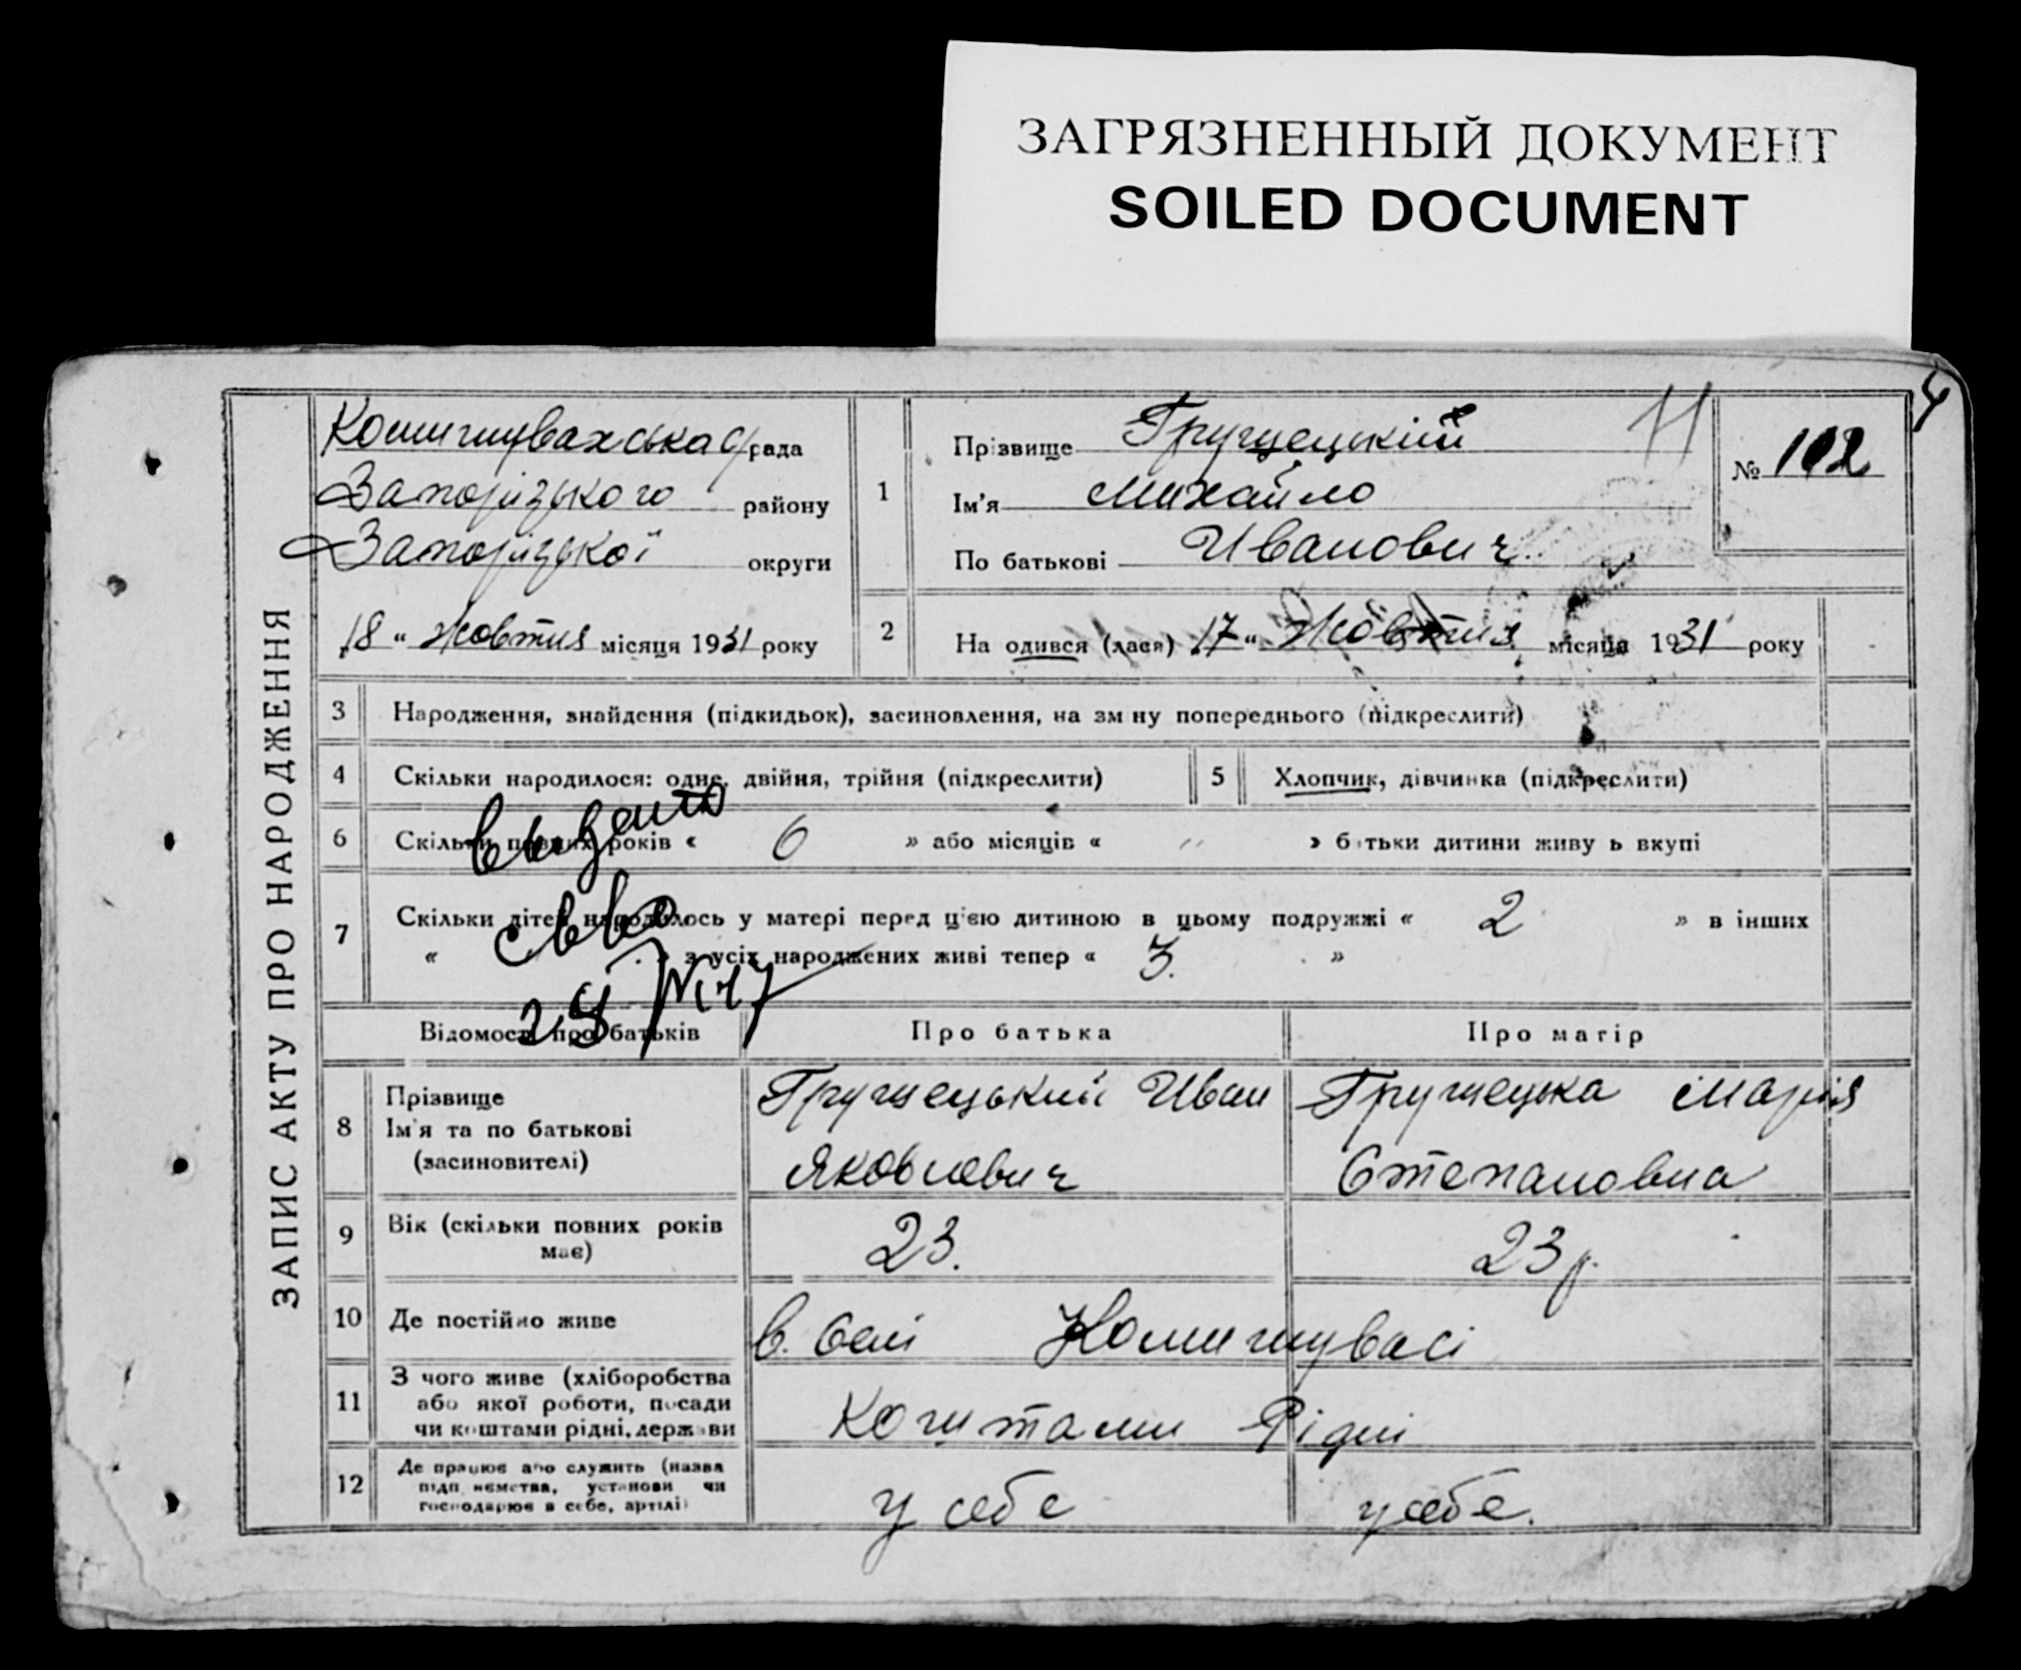 ЗАГРЯЗНЕННЫЙ ДОКУМЕНТ
SOILED DOCUMENT
4
ЗАПИС АКТУ ПРО НАРОДЖЕННЯ
Комишувахська с/рада
Запорізького району
Запорізької округи
18 " Жовтня місяця 1931 року
1
Прізвище Грушецький
Ім'я Михайло
По батькові Иванович
11
№ 102
2 На одився (лася) 17 " Жовтня місяця 1931 року
3 Народження, знайдення (підкидьок), засиновлення, на зм ну попереднього (підкреслити)
4 Скільки народилося: одне, двійня, трійня (підкреслити)
5 Хлопчик, дівчинка (підкреслити)
6 Скільки повних років « 6 » або місяців « " » батьки дитини живу ь вкупі
7 Скільки дітей народилось у матері перед цією дитиною в цьому подружжі « 2 » в інших
« » з усіх народжених живі тепер « 3. »
выдано
св во
Відомості про батьків Про батька Про матір
8 Прізвище
Ім'я та по батькові
(засиновителі)
Грушецький Иван
Яковлевич
Грушецька Марія
Степановна
9 Вік (скільки повних років
має)
23.
23 р.
10 Де постійно живе в. селі Комишувасі
11 З чого живе (хліборобства
або якої роботи, посади
чи коштами рідні, держави
Коштами Рідні
12 Де працює або служить (назва
підп иємства, установи чи
господарює в себе, артілі)
у себе
у себе.